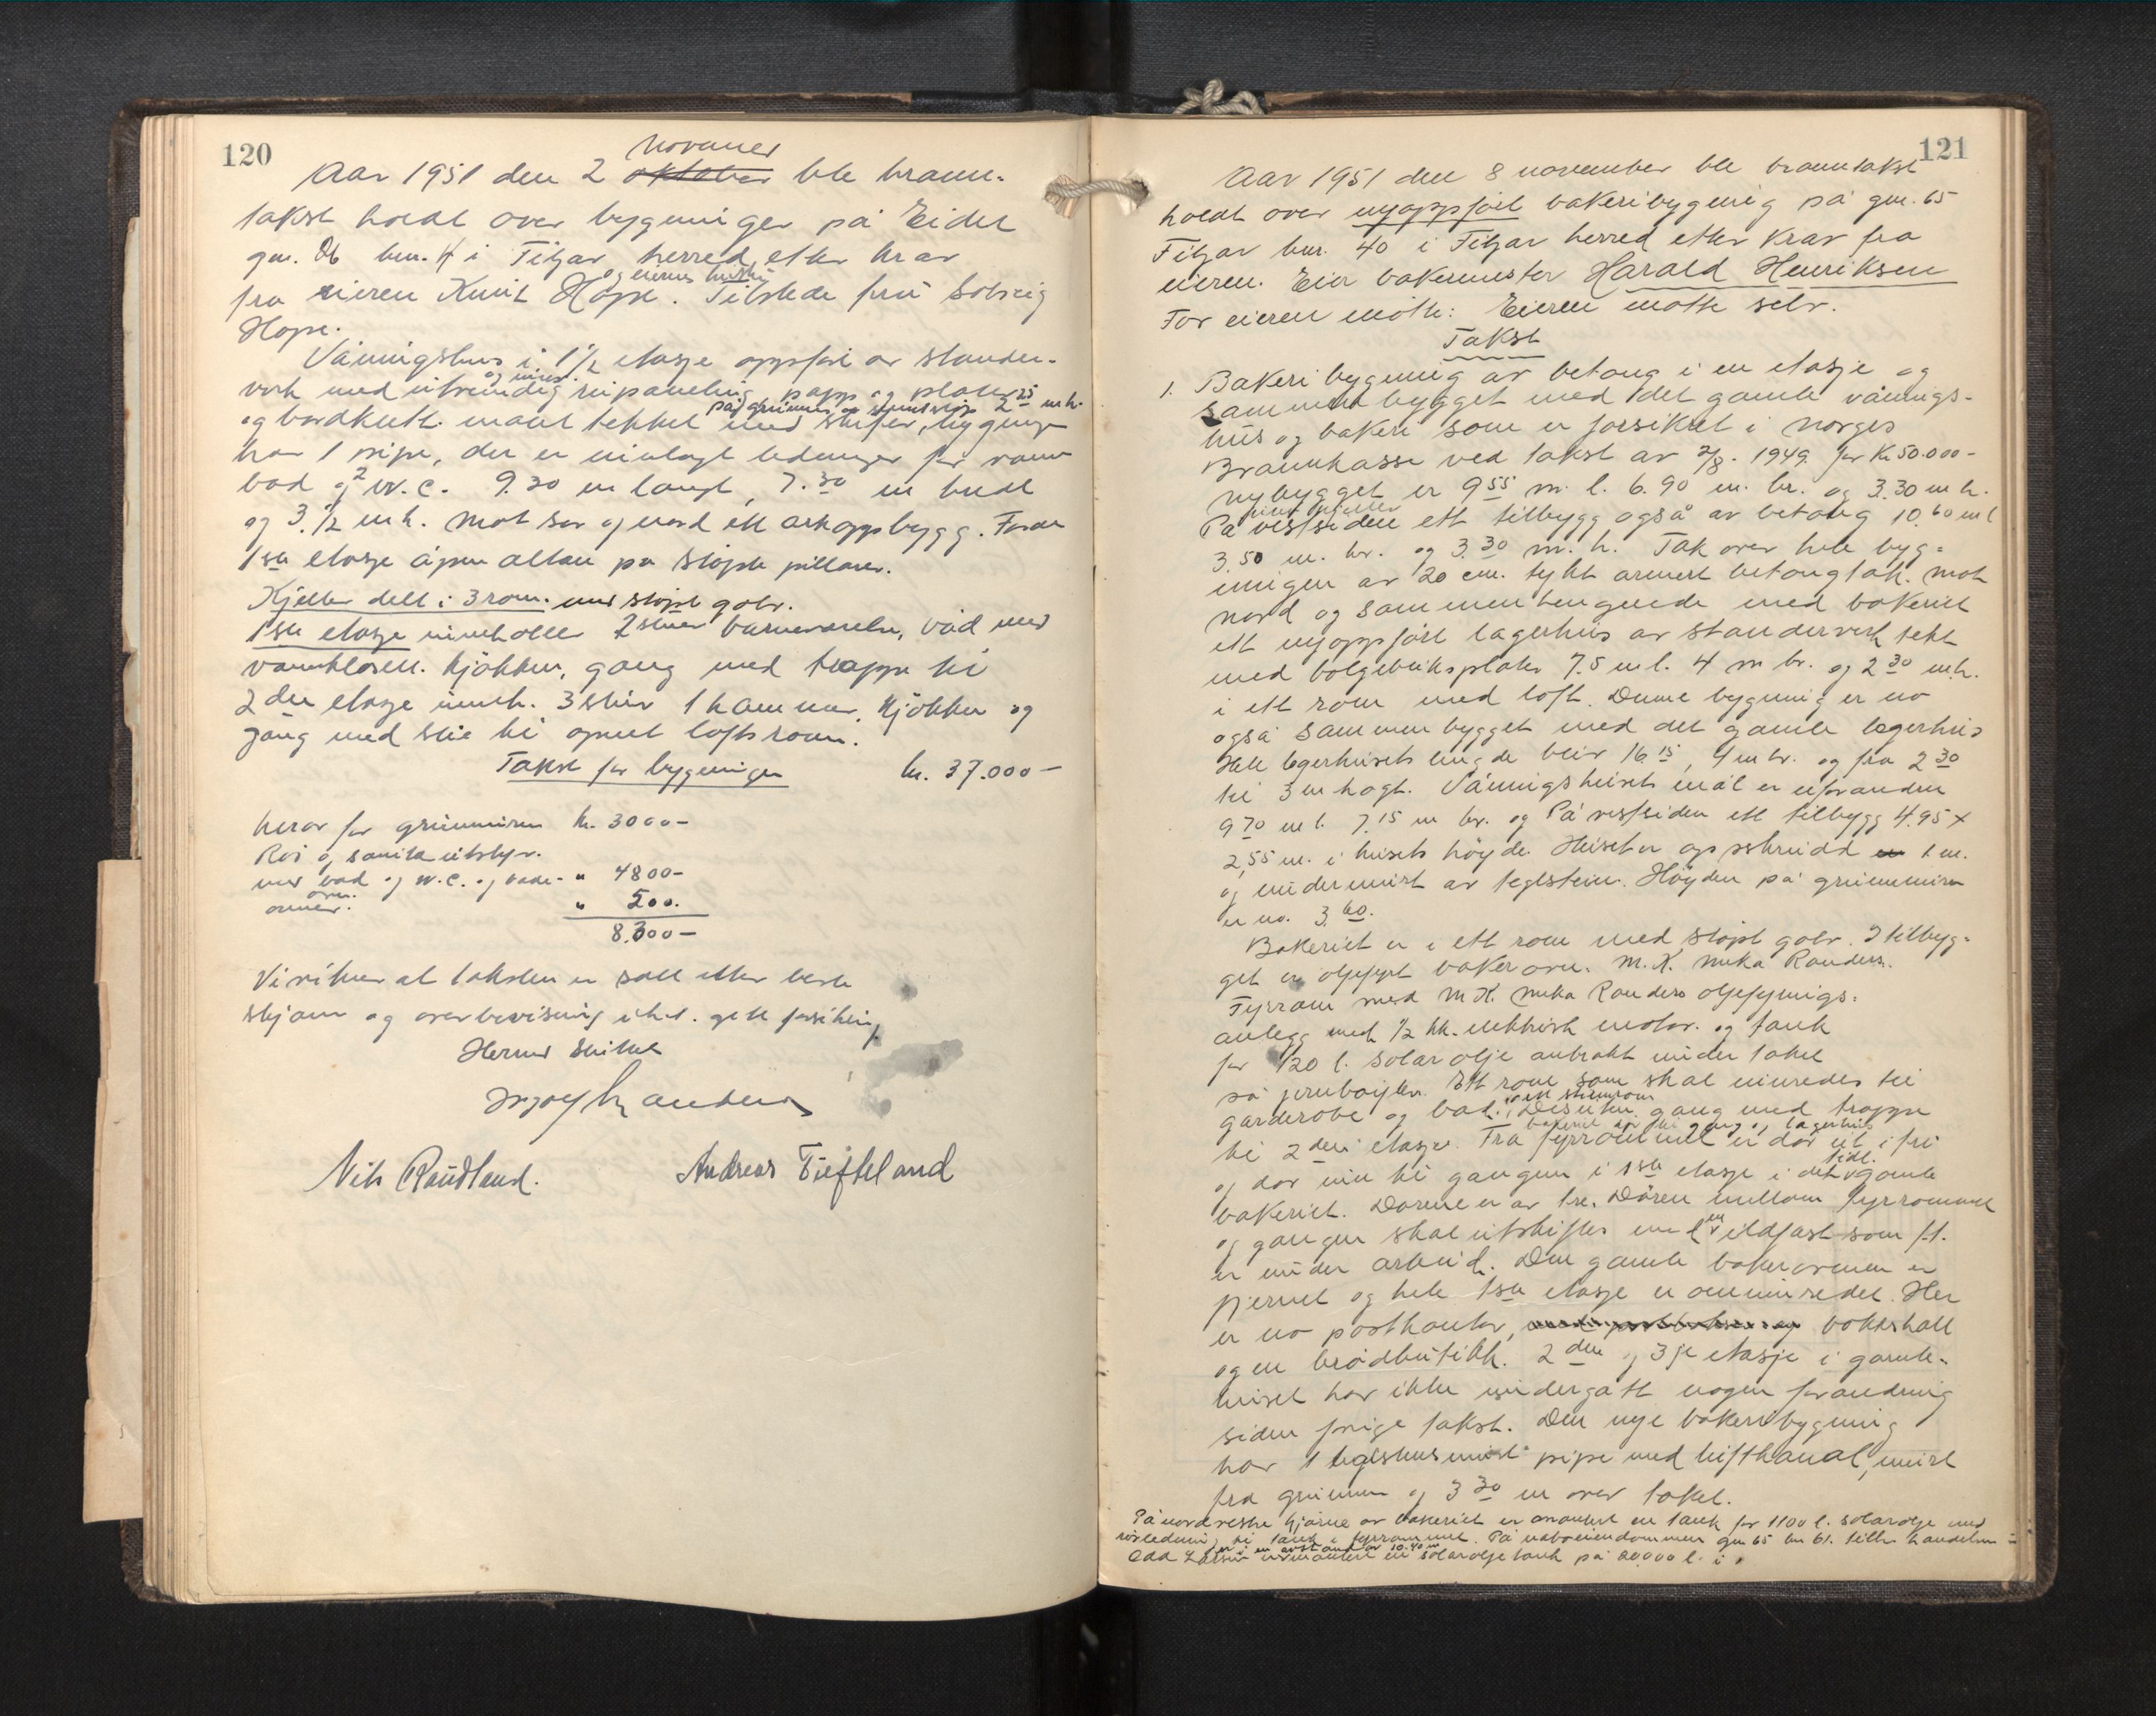 120
november
Aar 1951 den 2 oktober ble brann-
takst holdt over bygninger på Eidet
gnr. bnr. 4 i Fitjar herred etter krav
og eierens hustru
fra eieren Knut Hope. Tilstede fru Solveig
Hope.
Våningshus i 1 1/2 etasje oppført av stander-
og innv.
verk med utvendig papp og plater
på grunnmur av 2 25 m h.
og bordkledt malt tekket med skifer, bygningen
har 1 pipe, der er innlagt ledninger for vann
bad og 2 W.C. 9.20 m langt, 7.30 m bredt
og 3 1/2 m h. Mot sør og nord ett arkoppbygg. Foran
1ste etasje åpen altan på støpte pillarer.
Kjeller delt i 3 rom. med støpt golv.
1ste etasje inneholder 2 stuer barneværelse, bad med
vannklosett. Kjøkken, gang med trappe til
2den etasje inneh. 3 stuer 1 kammer, kjøkken og
gang med stie til åpent loftsrom.
Takst for bygningen kr. 37.000 -
herav for grunnmuren kr. 3000-
Rør og sanitærutstyr
med bad og W.C. og bade- " 4800-
ovn.
ovner. " 500.
8.300-
Vi vitner at taksten er satt etter beste
skjønn og overbevisning i h.t. gitt forsikring
Nils Raudland. Andreas Tufteland
121
Aar 1951 den 8 november ble branntakst
holdt over nyoppført bakeribygning på gnr. 65
Fitjar bnr. 40 i Fitjar herred etter krav fra
eieren. Eier bakermester Harald Henriksen
For eieren møtte: Eieren møtte selv.
Takst
1. Bakeribygning av betong i en etasje og
sammenbygget med det gamle vånings-
hus og bakeri som er forsikret i Norges
Brannkasse ved takst av 2/8. 1949. for Kr. 50.000-
nybygget er 9 55 m. l. 6.90 m. br. og 3.30 m h.
uten kjeller
På vestsiden ett tilbygg også av betong 10.60 m l
3.50 m. br. og 3.30 m. h. Tak over hele byg-
ningen av 20 cm. tykt armert betongtak. Mot
nord og sammenhengende med bakeriet
ett nyoppført lagerhus av standerverk tekt
med bølgeblikkplater 7.5 m l. 4 m br. og 2 30 m.h.
i ett rom med loft. Denne bygning er no
også sammenbygget med det gamle lagerhus
Hele lagerhusets lengde blir 16 15, 4 m br. og fra 2 30
til 3 m høgt. Våningshusets mål er uforandret
9 70 m l. 7.15 m br. og På vestsiden ett tilbygg 4.95 x
2,55 m. i husets høyde. Huset er oppskrudd 1 m.
og undermurt av teglstein. Høyden på grunnmuren
er no. 3.60.
Bakeriet er i ett rom med støpt golv. I tilbyg-
get er oljefyrt bakerovn. M.K. Meka Randers.
Fyrrom med M.K. Meka Randers oljefyrings-
anlegg med 1/2 hk. elektrisk motor. og tank
for 120 l. solarolje anbrakt under taket
på jernbøyler. Ett rom som skal innredes til
garderobe og bad. Desuten gang med trappe
til 2den etasje. Fra fyrrommet er dør ut i fri
og dør inn til gangen i 1ste etasje i det tidl. gamle
bakeriet. Dørene er av tre. Døren mellom fyrrommet
og gangen skal utskiftes med en ildfast som f.t.
er under arbeid. Den gamle bakerovnen er
fjernet og hele 1ste etasje er ominnredet. Her
er no postkontor, bokshall
og en brødbutikk. 2den og 3je etasje i gamle-
huset har ikke undergått nogen forandring
siden forige takst. Den nye bakeribygning
har 1 teglstensmurt pipe med luftkanal, murt
fra grunnen og 3 30 m over taket.
På nordvestre hjørne av bakeriet er anbrakt en tank for 1100 l. solarolje med
rørledning til tank i fyrrommet. På naboeiendommen gnr 65 bnr 61. tilh. handelsm
er i en avstand av 10.40 m
Odd nedmontert en solaroljetank på 20000 l. i